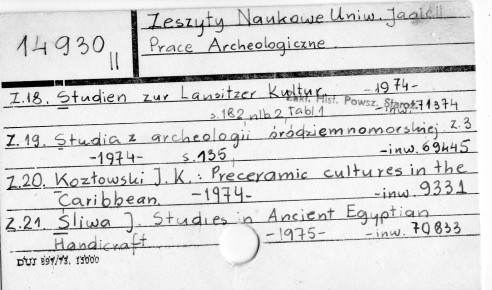 Zeszyty Naukowe Uniw. Jagiell
14930 II
Prace Archeologiczne
Z.18. Studien zur Lausitzer Kultur. -1974-
s.182 nlb 2 tabl 1 Zakł. Hist. Powsz. Staroż. -inw. 71374
Z.19. Studia z archeologii śródziemnomorskiej z.3
-1974- s.135 -inw. 69445
Z.20. Kozłowski J.K.: Preceramic cultures in the
Caribbean. -1974- -inw. 9331
Z.21. Śliwa J. Studies in Ancient Egyptian
Handicraft. -1975- -inw. 70833
DUJ 891/73, 15000